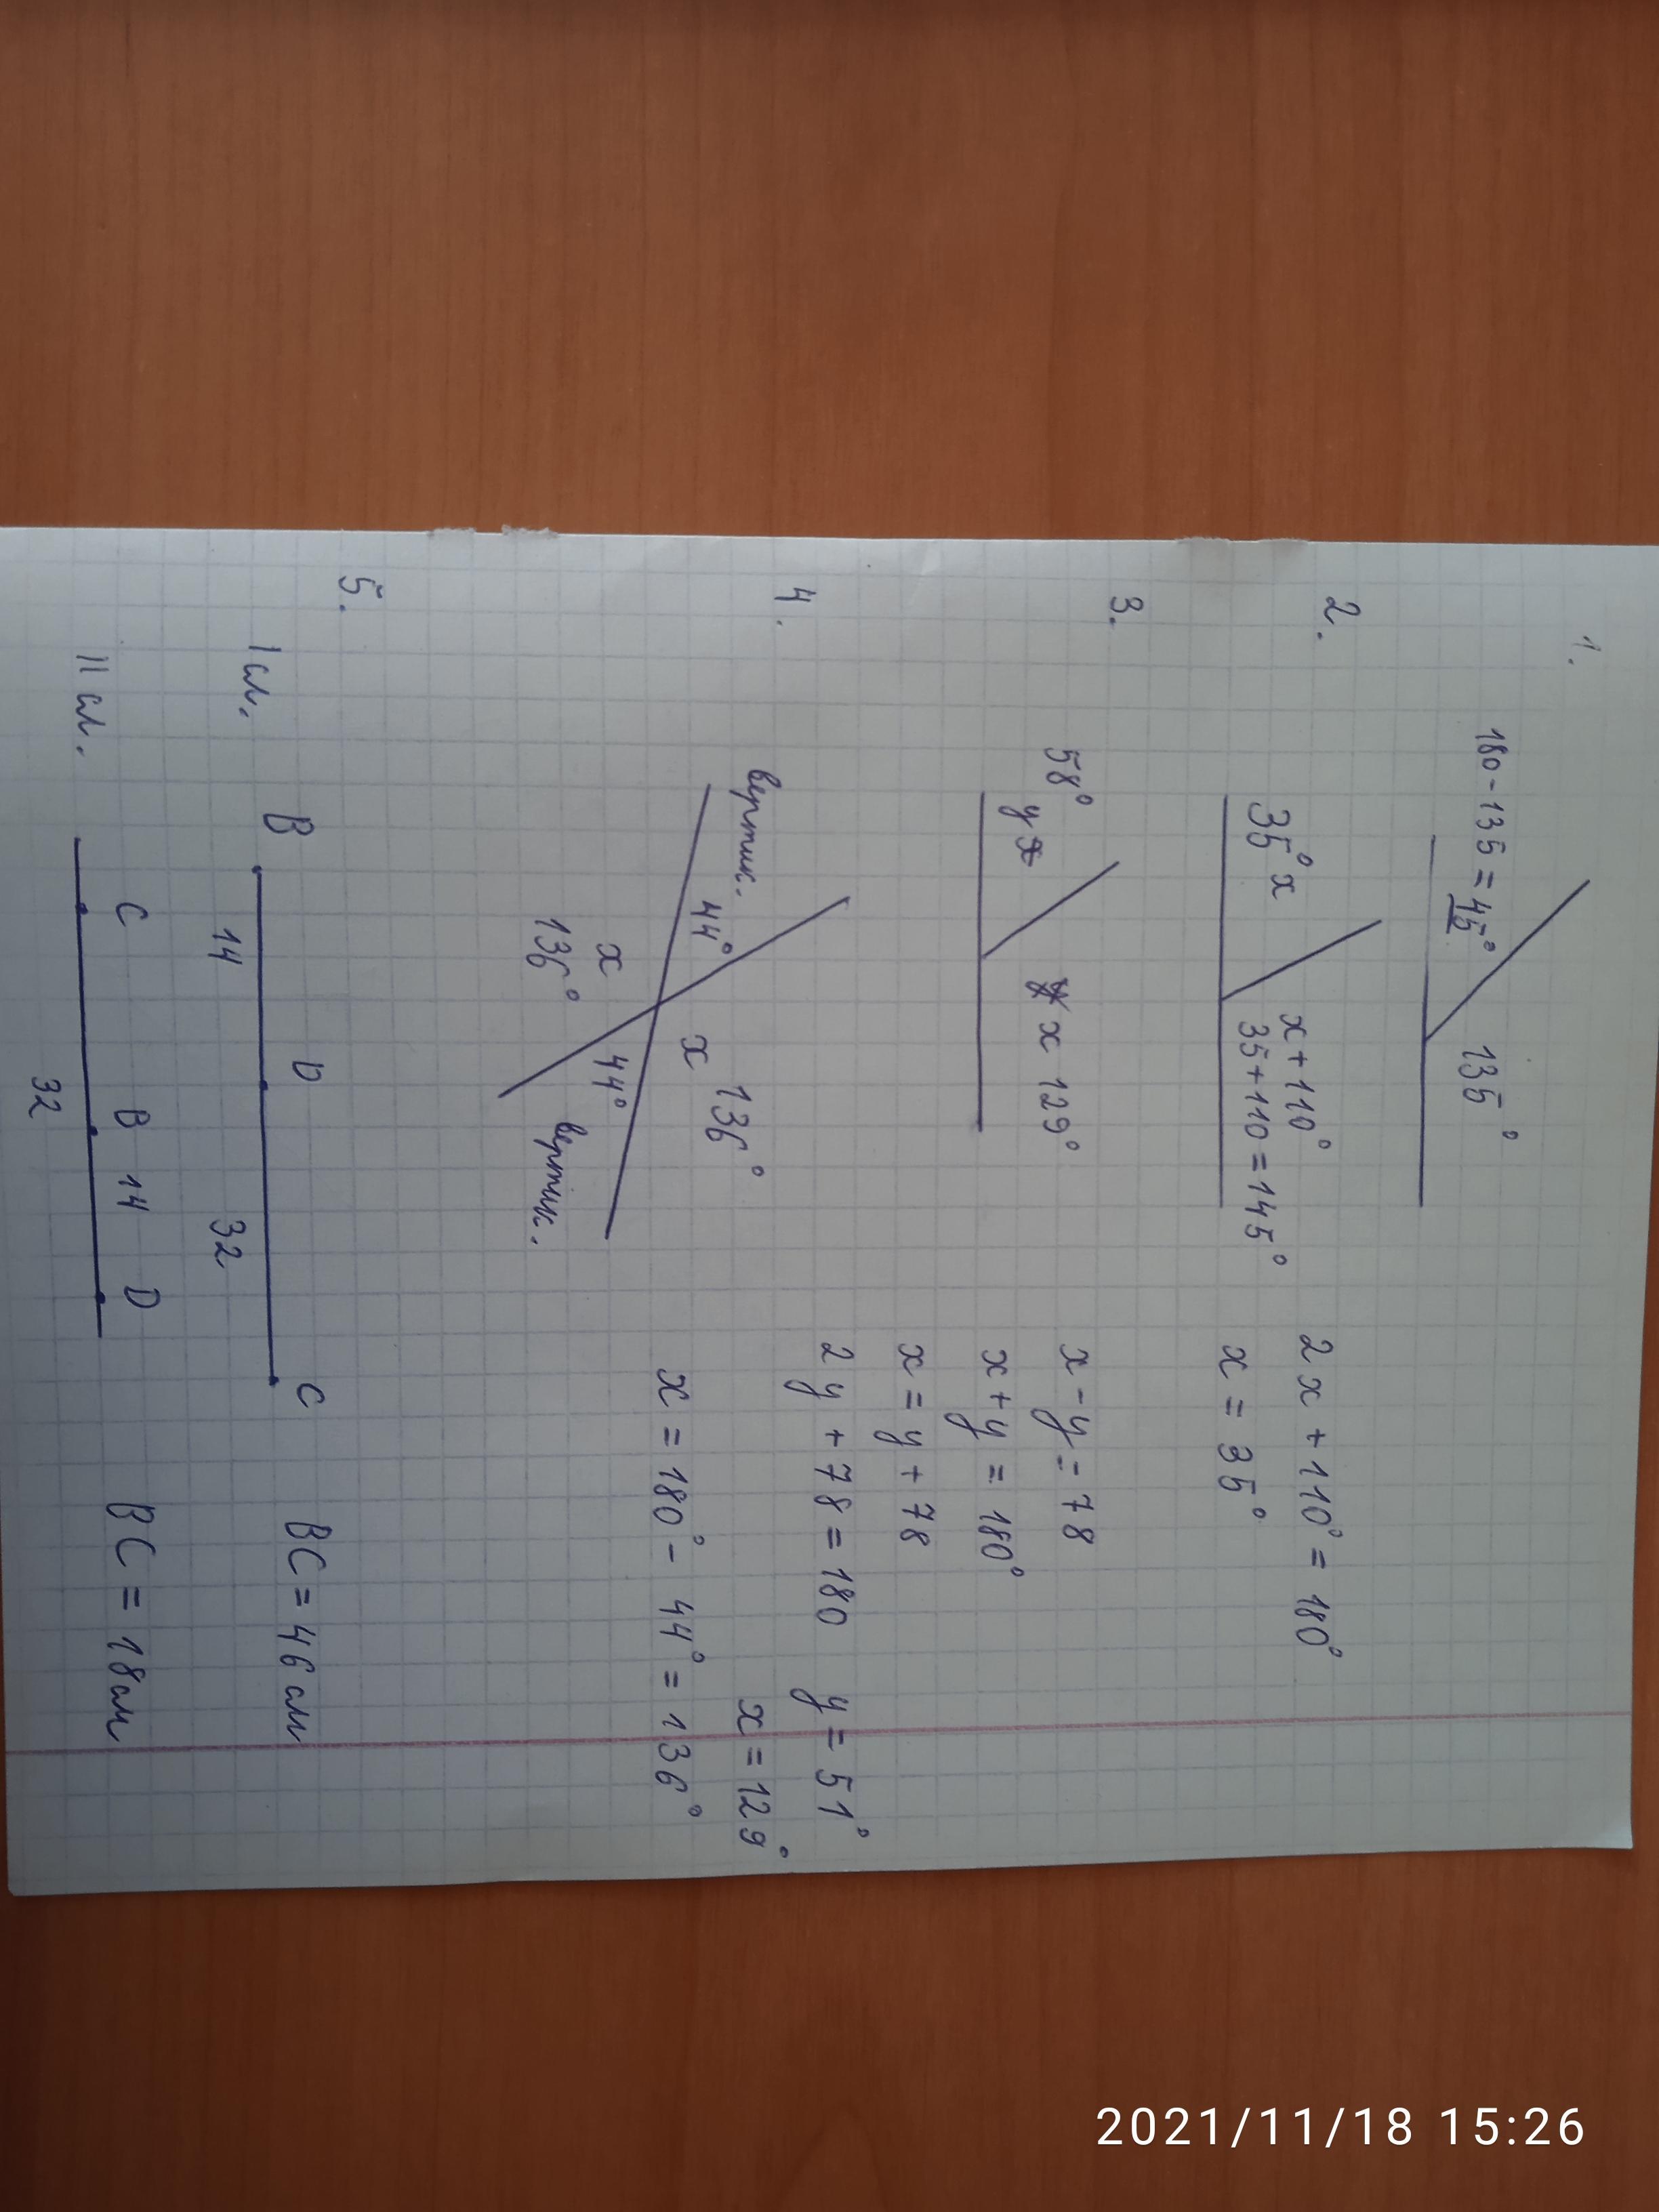 1.
180-135=45°
135°
2.
35° x
x+110°
35+110=145°
2x+110°=180°
x=35°
3.
58°
y
x 129°
x-y=78
x+y=180°
x=y+78
2y+78=180 y=51°
x=129°
4.
вертик.
44°
x 136°
x
136°
44°
вертик.
x=180°-44°=136°
5.
I сл.
B D C
14 32
BC=46см
II сл.
C B 14 D
32
BC=18см
2021/11/18 15:26